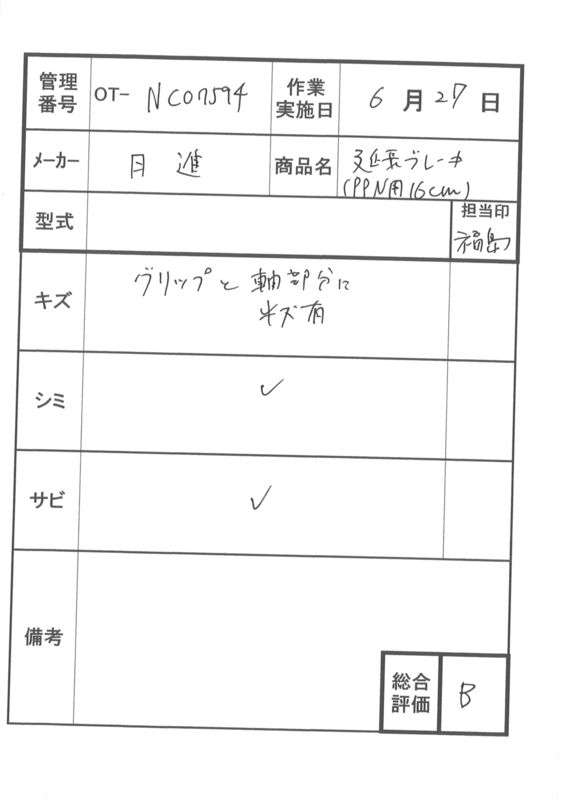 管理番号 OT- NC07594 作業実施日 6月27日
メーカー 日進 商品名 延長ブレーキ
(PPN用16cm)
型式 担当印
福島
キズ グリップと軸部分に
キズ有
シミ ✓
サビ ✓
備考
総合評価 B